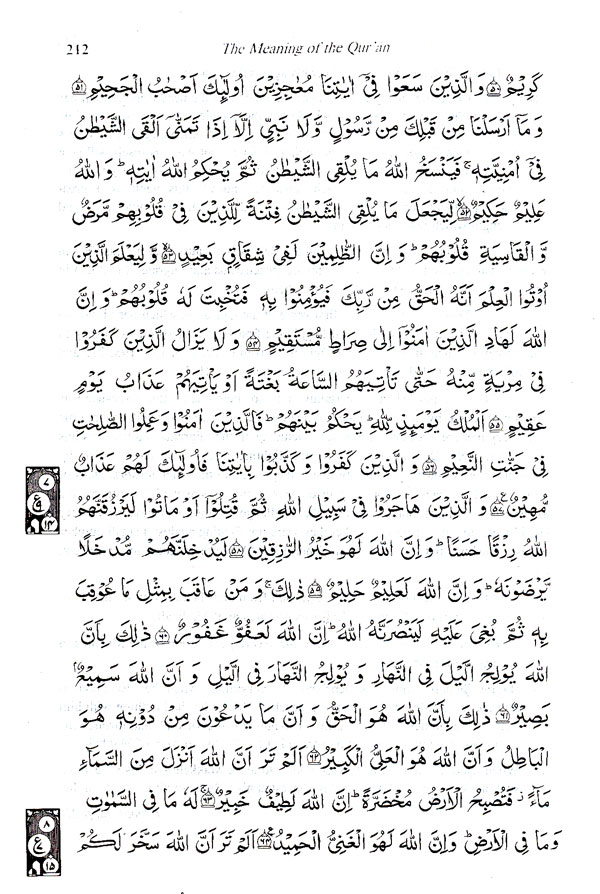 212 The Meaning of the Qur'an
كَرِيْمٌ ﴿۵۰﴾ وَ الَّذِيْنَ سَعَوْا فِيْۤ اٰيٰتِنَا مُعٰجِزِيْنَ اُولٰٓئِكَ اَصْحٰبُ الْجَحِيْمِ ﴿۵۱﴾
وَ مَاۤ اَرْسَلْنَا مِنْ قَبْلِكَ مِنْ رَّسُوْلٍ وَّ لَا نَبِيٍّ اِلَّاۤ اِذَا تَمَنّٰۤى اَلْقَى الشَّيْطٰنُ
فِيْۤ اُمْنِيَّتِهٖ ۚ فَيَنْسَخُ اللّٰهُ مَا يُلْقِى الشَّيْطٰنُ ثُمَّ يُحْكِمُ اللّٰهُ اٰيٰتِهٖ ؕ وَ اللّٰهُ
عَلِيْمٌ حَكِيْمٌ ﴿۵۲﴾ لِّيَجْعَلَ مَا يُلْقِى الشَّيْطٰنُ فِتْنَةً لِّلَّذِيْنَ فِيْ قُلُوْبِهِمْ مَّرَضٌ
وَّ الْقَاسِيَةِ قُلُوْبُهُمْ ؕ وَ اِنَّ الظّٰلِمِيْنَ لَفِيْ شِقَاقٍۭ بَعِيْدٍ ﴿۵۳﴾ وَّ لِيَعْلَمَ الَّذِيْنَ
اُوْتُوا الْعِلْمَ اَنَّهُ الْحَقُّ مِنْ رَّبِّكَ فَيُؤْمِنُوْا بِهٖ فَتُخْبِتَ لَهٗ قُلُوْبُهُمْ ؕ وَ اِنَّ
اللّٰهَ لَهَادِ الَّذِيْنَ اٰمَنُوْۤا اِلٰى صِرَاطٍ مُّسْتَقِيْمٍ ﴿۵۴﴾ وَ لَا يَزَالُ الَّذِيْنَ كَفَرُوْا
فِيْ مِرْيَةٍ مِّنْهُ حَتّٰى تَاْتِيَهُمُ السَّاعَةُ بَغْتَةً اَوْ يَاْتِيَهُمْ عَذَابُ يَوْمٍ
عَقِيْمٍ ﴿۵۵﴾ اَلْمُلْكُ يَوْمَئِذٍ لِّلّٰهِ ؕ يَحْكُمُ بَيْنَهُمْ ؕ فَالَّذِيْنَ اٰمَنُوْا وَ عَمِلُوا الصّٰلِحٰتِ
فِيْ جَنّٰتِ النَّعِيْمِ ﴿۵۶﴾ وَ الَّذِيْنَ كَفَرُوْا وَ كَذَّبُوْا بِاٰيٰتِنَا فَاُولٰٓئِكَ لَهُمْ عَذَابٌ
مُّهِيْنٌ ﴿۵۷﴾ وَ الَّذِيْنَ هَاجَرُوْا فِيْ سَبِيْلِ اللّٰهِ ثُمَّ قُتِلُوْۤا اَوْ مَاتُوْا لَيَرْزُقَنَّهُمُ
۷
ع
۱۴
اللّٰهُ رِزْقًا حَسَنًا ؕ وَ اِنَّ اللّٰهَ لَهُوَ خَيْرُ الرّٰزِقِيْنَ ﴿۵۸﴾ لَيُدْخِلَنَّهُمْ مُّدْخَلًا
يَّرْضَوْنَهٗ ؕ وَ اِنَّ اللّٰهَ لَعَلِيْمٌ حَلِيْمٌ ﴿۵۹﴾ ذٰلِكَ ۚ وَ مَنْ عَاقَبَ بِمِثْلِ مَا عُوْقِبَ
بِهٖ ثُمَّ بُغِيَ عَلَيْهِ لَيَنْصُرَنَّهُ اللّٰهُ ؕ اِنَّ اللّٰهَ لَعَفُوٌّ غَفُوْرٌ ﴿۶۰﴾ ذٰلِكَ بِاَنَّ
اللّٰهَ يُوْلِجُ الَّيْلَ فِي النَّهَارِ وَ يُوْلِجُ النَّهَارَ فِي الَّيْلِ وَ اَنَّ اللّٰهَ سَمِيْعٌۢ
بَصِيْرٌ ﴿۶۱﴾ ذٰلِكَ بِاَنَّ اللّٰهَ هُوَ الْحَقُّ وَ اَنَّ مَا يَدْعُوْنَ مِنْ دُوْنِهٖ هُوَ
الْبَاطِلُ وَ اَنَّ اللّٰهَ هُوَ الْعَلِيُّ الْكَبِيْرُ ﴿۶۲﴾ اَلَمْ تَرَ اَنَّ اللّٰهَ اَنْزَلَ مِنَ السَّمَآءِ
مَآءً ؗ فَتُصْبِحُ الْاَرْضُ مُخْضَرَّةً ؕ اِنَّ اللّٰهَ لَطِيْفٌ خَبِيْرٌ ﴿۶۳﴾ لَهٗ مَا فِي السَّمٰوٰتِ
وَ مَا فِي الْاَرْضِ ؕ وَ اِنَّ اللّٰهَ لَهُوَ الْغَنِيُّ الْحَمِيْدُ ﴿۶۴﴾ اَلَمْ تَرَ اَنَّ اللّٰهَ سَخَّرَ لَكُمْ
۸
ع
۱۵